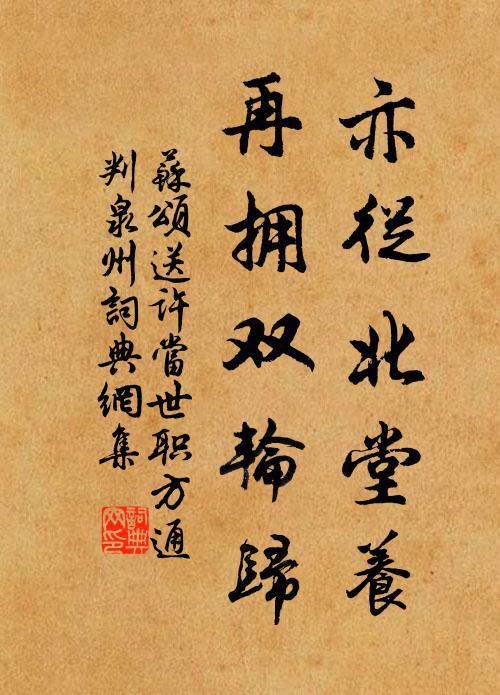 亦從北堂養
再拥双輪歸
蘇頌送許當世职方通
判泉州詞典網集
詞典